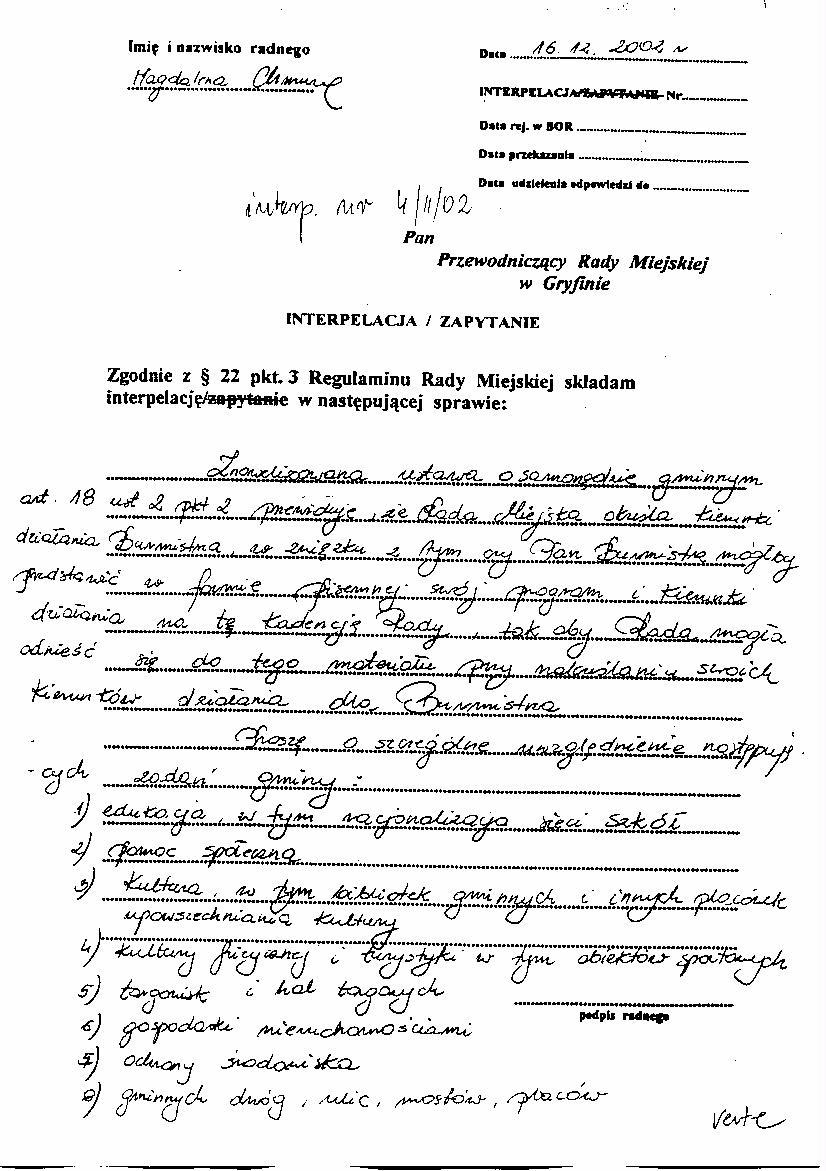 Imię i nazwisko radnego
Magdalena Chmura
Data 16. 12. 2002 r
INTERPELACJA/ZAPYTANIE Nr
Data rej. w BOR
Data przekazania
Data udzielenia odpowiedzi do
interp. nr 4/II/02
Pan
Przewodniczący Rady Miejskiej
w Gryfinie
INTERPELACJA / ZAPYTANIE
Zgodnie z § 22 pkt. 3 Regulaminu Rady Miejskiej składam
interpelację/zapytanie w następującej sprawie:
Znowelizowana ustawa o samorządzie gminnym
art. 18 ust 2 pkt 2 przewiduje, że Rada Miejska określa kierunki
działania Burmistrza, w związku z tym czy Pan Burmistrz mógłby
przedstawić w formie pisemnej swój program i kierunki
działania na tę kadencję Rady, tak aby Rada mogła
odnieść się do tego materiału przy nakreślaniu swoich
kierunków działania dla Burmistrza
Proszę o szczególne uwzględnienie następują
- cych zadań gminy :
1) edukacja, w tym racjonalizacja sieci szkół
2) pomoc społeczna
3) kultura, w tym bibliotek gminnych i innych placówek
upowszechniania kultury
4) kultury fizycznej i turystyki w tym obiektów sportowych
5) targowisk i hal targowych
podpis radnego
6) gospodarki nieruchomościami
7) ochrony środowiska
8) gminnych dróg, ulic, mostów, placów
verte